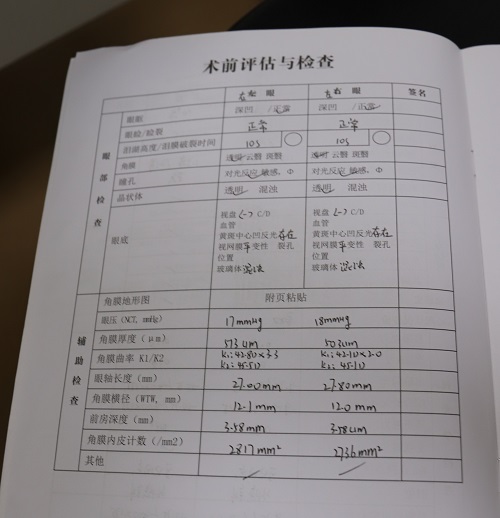 术前评估与检查
左 眼 右 眼 签名
眼部检查
眼眶 深凹 /正常 深凹 /正常
眼睑/睑裂 正常 正常
泪湖高度/泪膜破裂时间 10s 10s
角膜 透明 云翳 斑翳 透明 云翳 斑翳
瞳孔 对光反应 敏感、Φ 对光反应 敏感、Φ
晶状体 透明 混浊 透明 混浊
眼底
视盘 (-) C/D 视盘 (-) C/D
血管 血管
黄斑中心凹反光存在 黄斑中心凹反光存在
视网膜 变性 裂孔 视网膜 变性 裂孔
位置 位置
玻璃体 玻璃体
辅助检查
角膜地形图 附页粘贴
眼压（NCT, mmHg） 17mmHg 18mmHg
角膜厚度（μm） 513um
角膜曲率 K1/K2 K1: 42.80 K1: 42.10
K2: 45.10
眼轴长度（mm） 27.00mm 27.80mm
角膜横径（WTW, mm） 12.1mm 12.0mm
前房深度（mm） 3.58mm 3.58
角膜内皮计数（/mm2） 2817mm² 2736mm²
其他